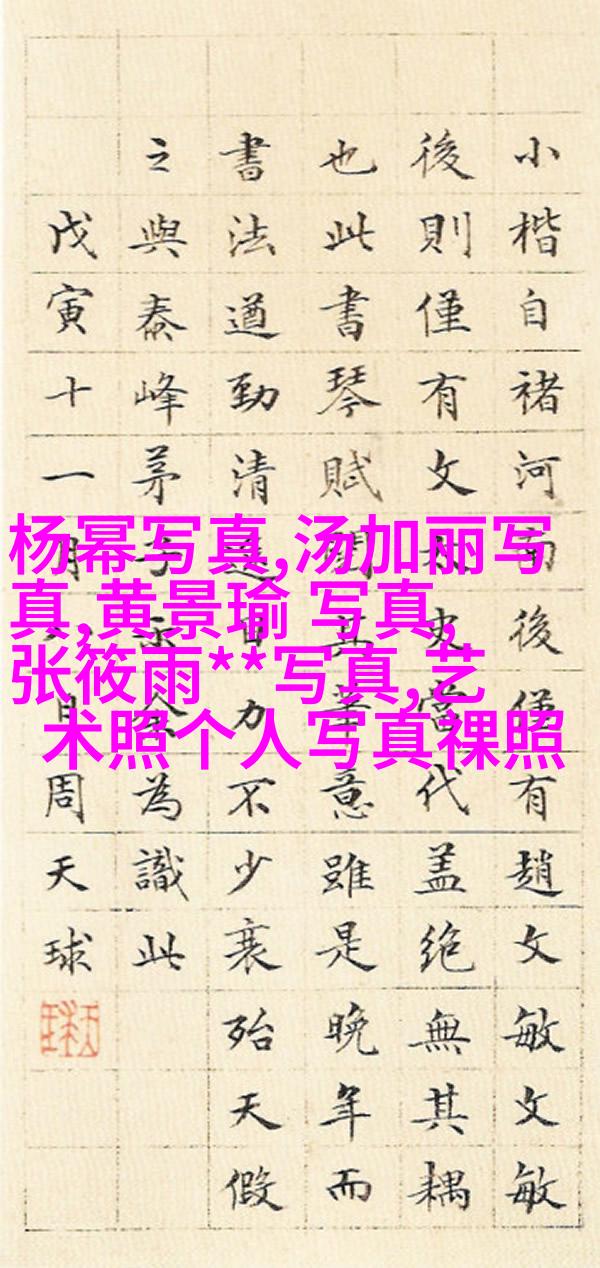 小楷自褚河南後僅有趙文敏文敏
後則僅有文史當代盖絶無其耦
也此書琴賦其意雖是晚年而
書法遒勁清逸目力不少衰殆天假
之與泰峰茅子示余為識此
戊寅十一月日周天球
杨幂写真,汤加丽写
真,黄景瑜 写真,
张筱雨**写真,艺
术照个人写真裸照